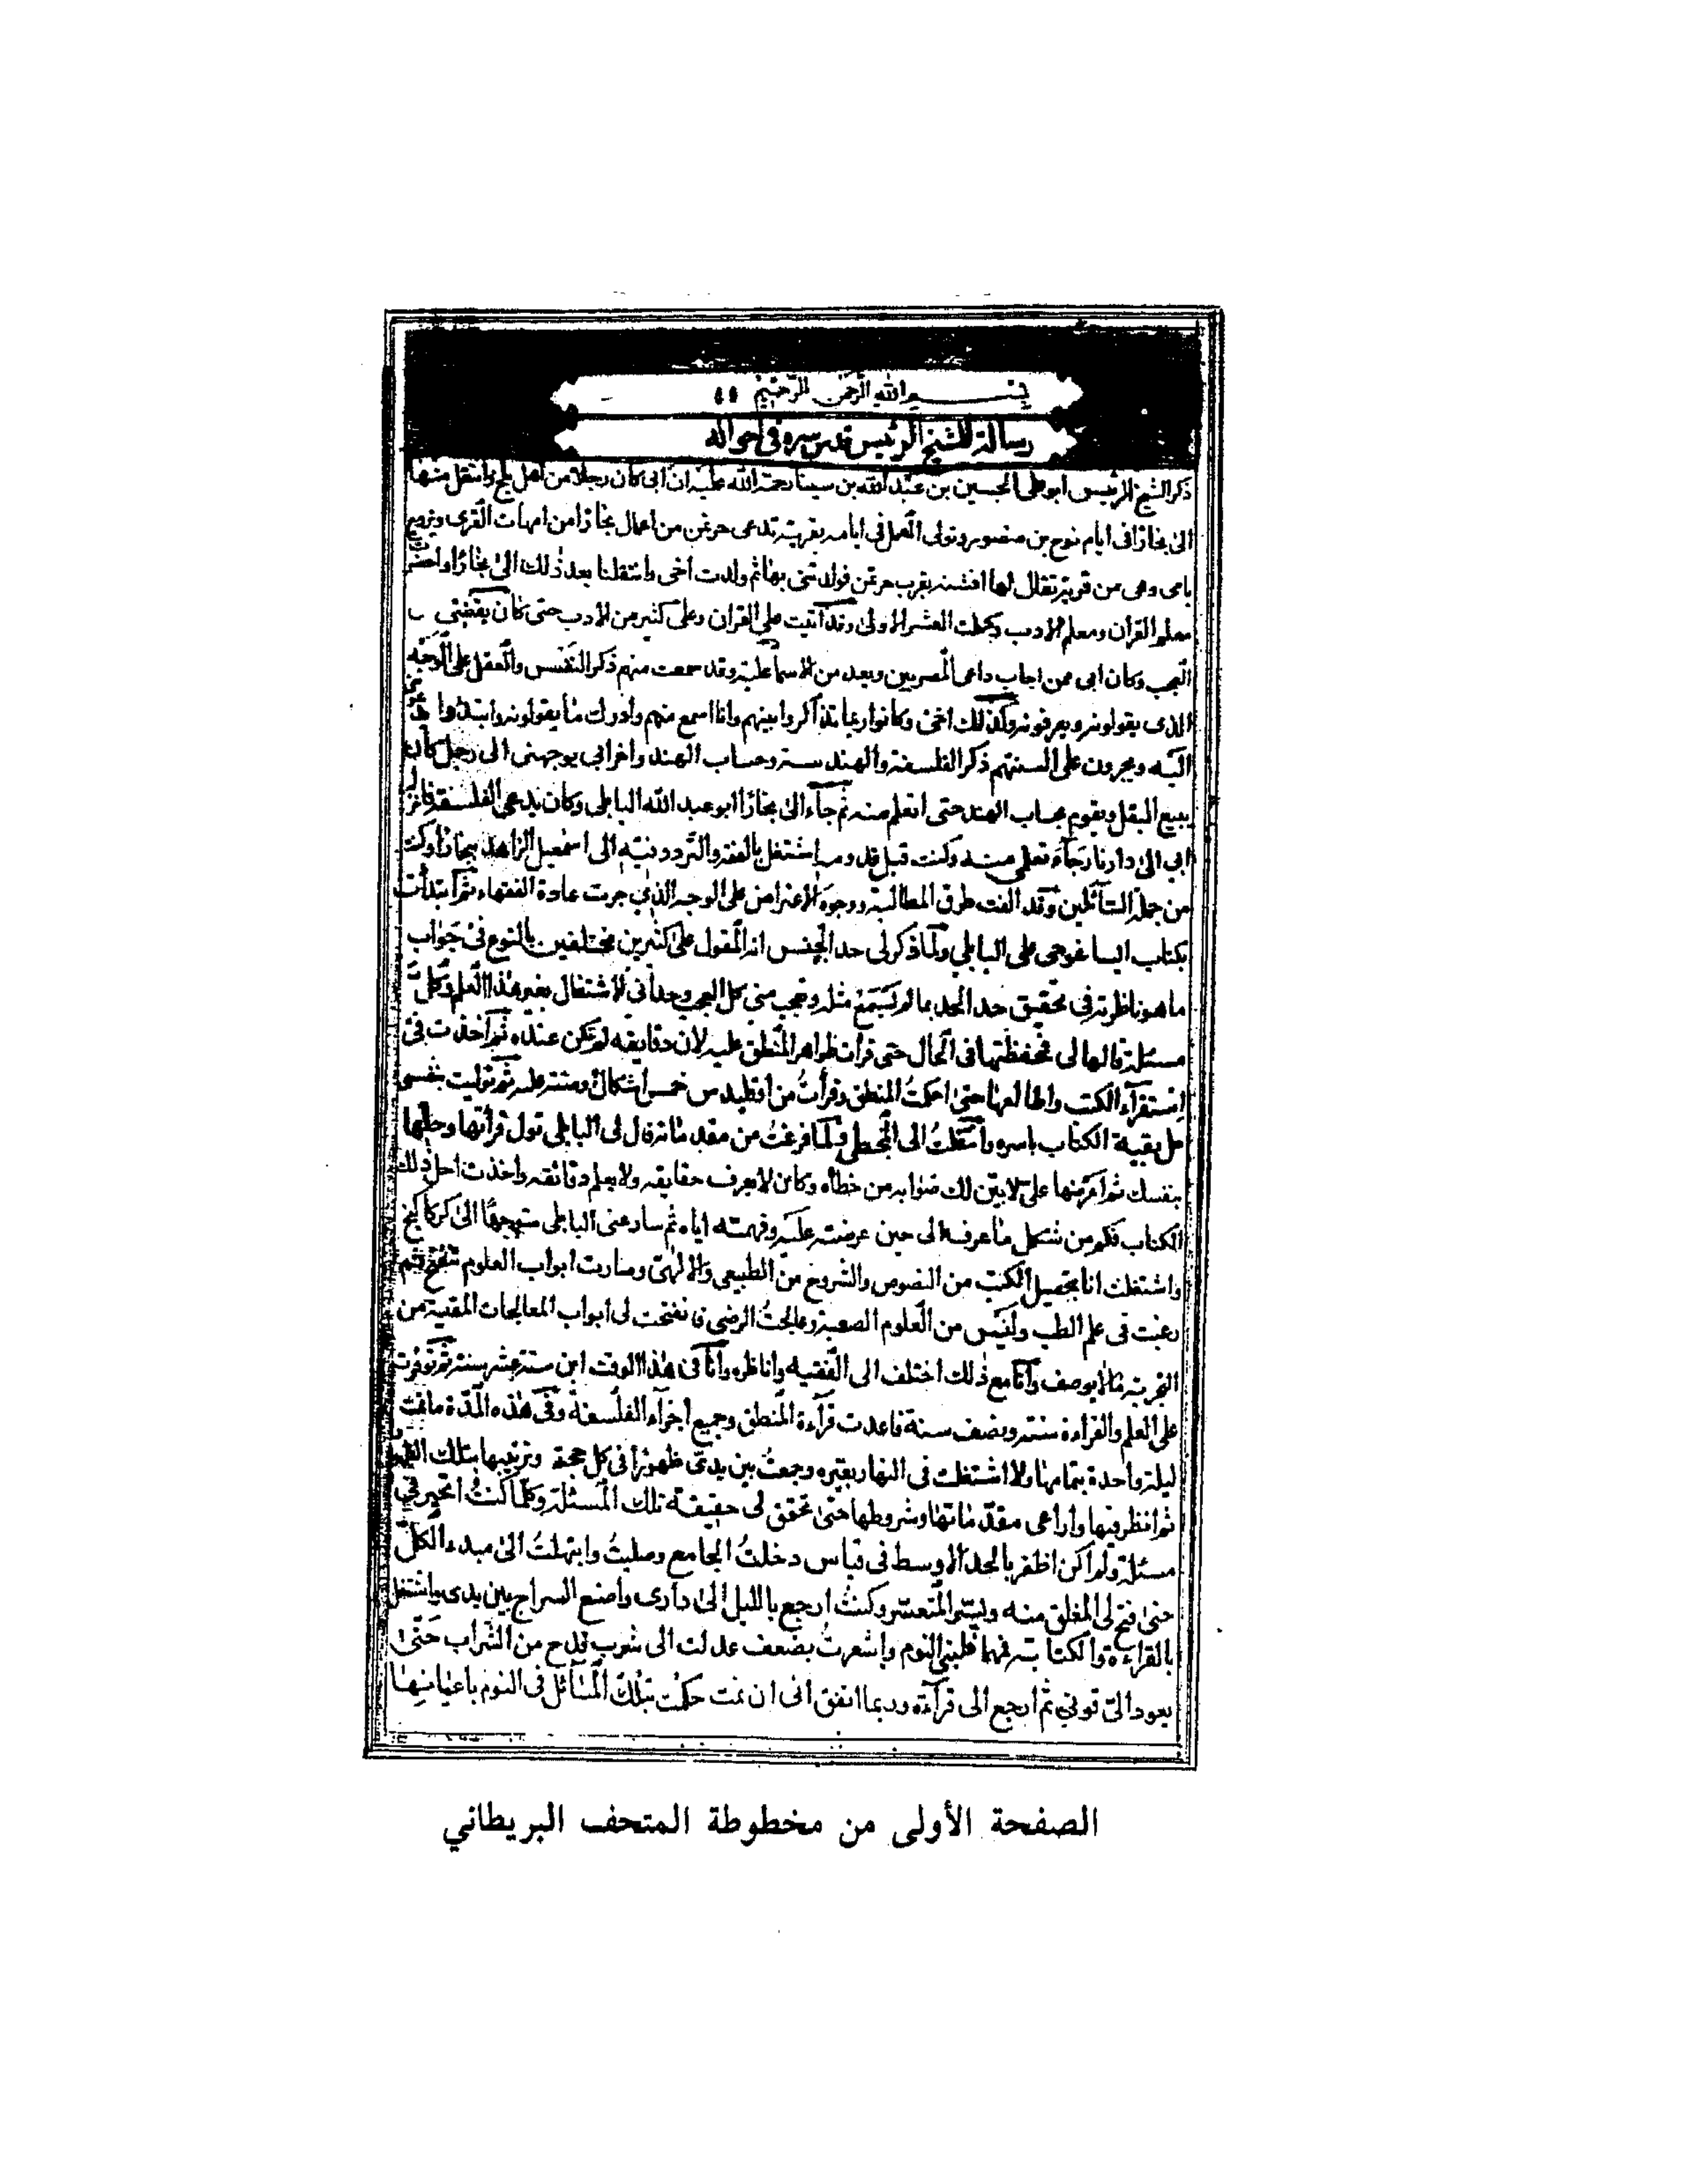 بسم الله الرحمن الرحيم
رسالة للشيخ الرئيس قدس سره في احواله
ذكر الشيخ الرئيس ابو على الحسين بن عبد الله بن سينا رحمة الله عليه ان ابى كان رجلا من اهل بلخ وانتقل منها
الى بخارا فى ايام نوح بن منصور وتولى العمل فى ايامه بقرية تدعى خرمثن من اعمال بخارا من امهات القرى وتزوج
بامى وهى من قرية يقال لها افشنه بقرب خرمثن فولدتنى بها ثم ولدت أخى وانتقلنا بعد ذلك الى بخارا واحضر
معلم القرآن ومعلم الادب وكملت العشر الاولى وقد أتيت على القرآن وعلى كثير من الادب حتى كان يقضى
العجب وكان ابى ممن اجاب داعى المصريين ويعد من الاسماعلية وقد سمعت منهم ذكر النفس والعقل على الوجه
الذى يقولونه ويعرفونه وكذلك اخى وكانوا ربما تذاكروا بينهم وانا اسمع منهم وادرك ما يقولونه وابتدوا
اليه ويجرون على السنتهم ذكر الفلسفة والهندسة وحساب الهند واخذ ابى يوجهنى الى رجل كان
يبيع البقل ويقوم بحساب الهند حتى اتعلم منه ثم جاء الى بخارا ابو عبد الله الباطلى وكان يدعى الفلسفة فانزله
ابى الى دارنا رجاء تعلمى منه وكنت قبل قدومه اشتغل بالفقه والتردد فيه الى اسمعيل الزاهد ببخارا وكنت
من جملة السائلين وقد الفت طرق المطالبة ووجوه الاعتراض على الوجه الذى جرت عادة الفقهاء ثم ابتدأت
بكتاب ايساغوجى على الباطلى ولما ذكر لى حد الجنس انه المقول على كثيرين مختلفين بالنوع فى جواب
ما هو ناظرته فى تحقيق حد الحد بما لم يسمع مثله وتعجب منى كل العجب وحد أنى لاشتغال بغير هذا العلم وكل
مسئلة قالها لى فحفظتها فى الحال حتى قرأت ظواهر المنطق عليه لان دقايقه لم تكن عنده ثم اخذت فى
استقراء الكتب واطالعها حتى احكمت المنطق وقرأت من اقليدس خمس اشكال وستة عليه ثم توليت بنفسى
حل بقية الكتاب باسره وانتقلت الى المجسطى ولما فرغت من مقدماته قال لى الباطلى تول قرأتها وحلها
بنفسك ثم اعرضها على لابين لك صوابه من خطأه وكان لا يعرف حقايقه ولا يعلم دقائقه واخذت احل ذلك
الكتاب فكم من شكل ما عرفه الى حين عرضته عليه وفهمته اياه ثم سار عنى الباطلى متوجها الى كركانج
واشتغلت انا بتحصيل الكتب من النصوص والشروح من الطبيعى والالهى وصارت ابواب العلوم تنفتح ثم
رغبت فى علم الطب وليس من العلوم الصعبة وعالجت المرضى فانفتحت لى ابواب المعالجات المقتبسة من
التجربة ما لا يوصف وأنا مع ذلك اختلف الى الفقيه واناظره وأنا فى هذا الوقت ابن ستة عشر سنة ثم توفرت
على العلم والقراءة سنة ونصف سنة فاعدت قرآءة المنطق وجميع اجزآء الفلسفة وفى هذه المدة ما نمت
ليلة واحدة بتمامها ولا اشتغلت فى النهار بغيره وجمعت بين يدى ظهورا فى كل حجة وترتيبها بتلك
ثم انظر فيها واراعى مقدماتها وشروطها حتى تحقق لى حقيقة تلك المسئلة وكلما كنت اتحير فى
مسئلة ولم اكن اظفر بالحد الاوسط فى قياس دخلت الجامع وصليت وابتهلت الى مبدء الكل
حتى فتح لى المغلق منه ويسر المتعسر وكنت ارجع بالليل الى دارى واضع السراج بين يدى واشتغل
بالقراءة والكتابة فمهما غلبنى النوم واشعرت بضعف عدلت الى شرب قدح من الشراب حتى
يعود الى قوتي ثم ارجع الى قرآءة وربما اتفق انى ان نمت حكمت بتلك المسائل فى النوم باعيانها
الصفحة الأولى من مخطوطة المتحف البريطاني